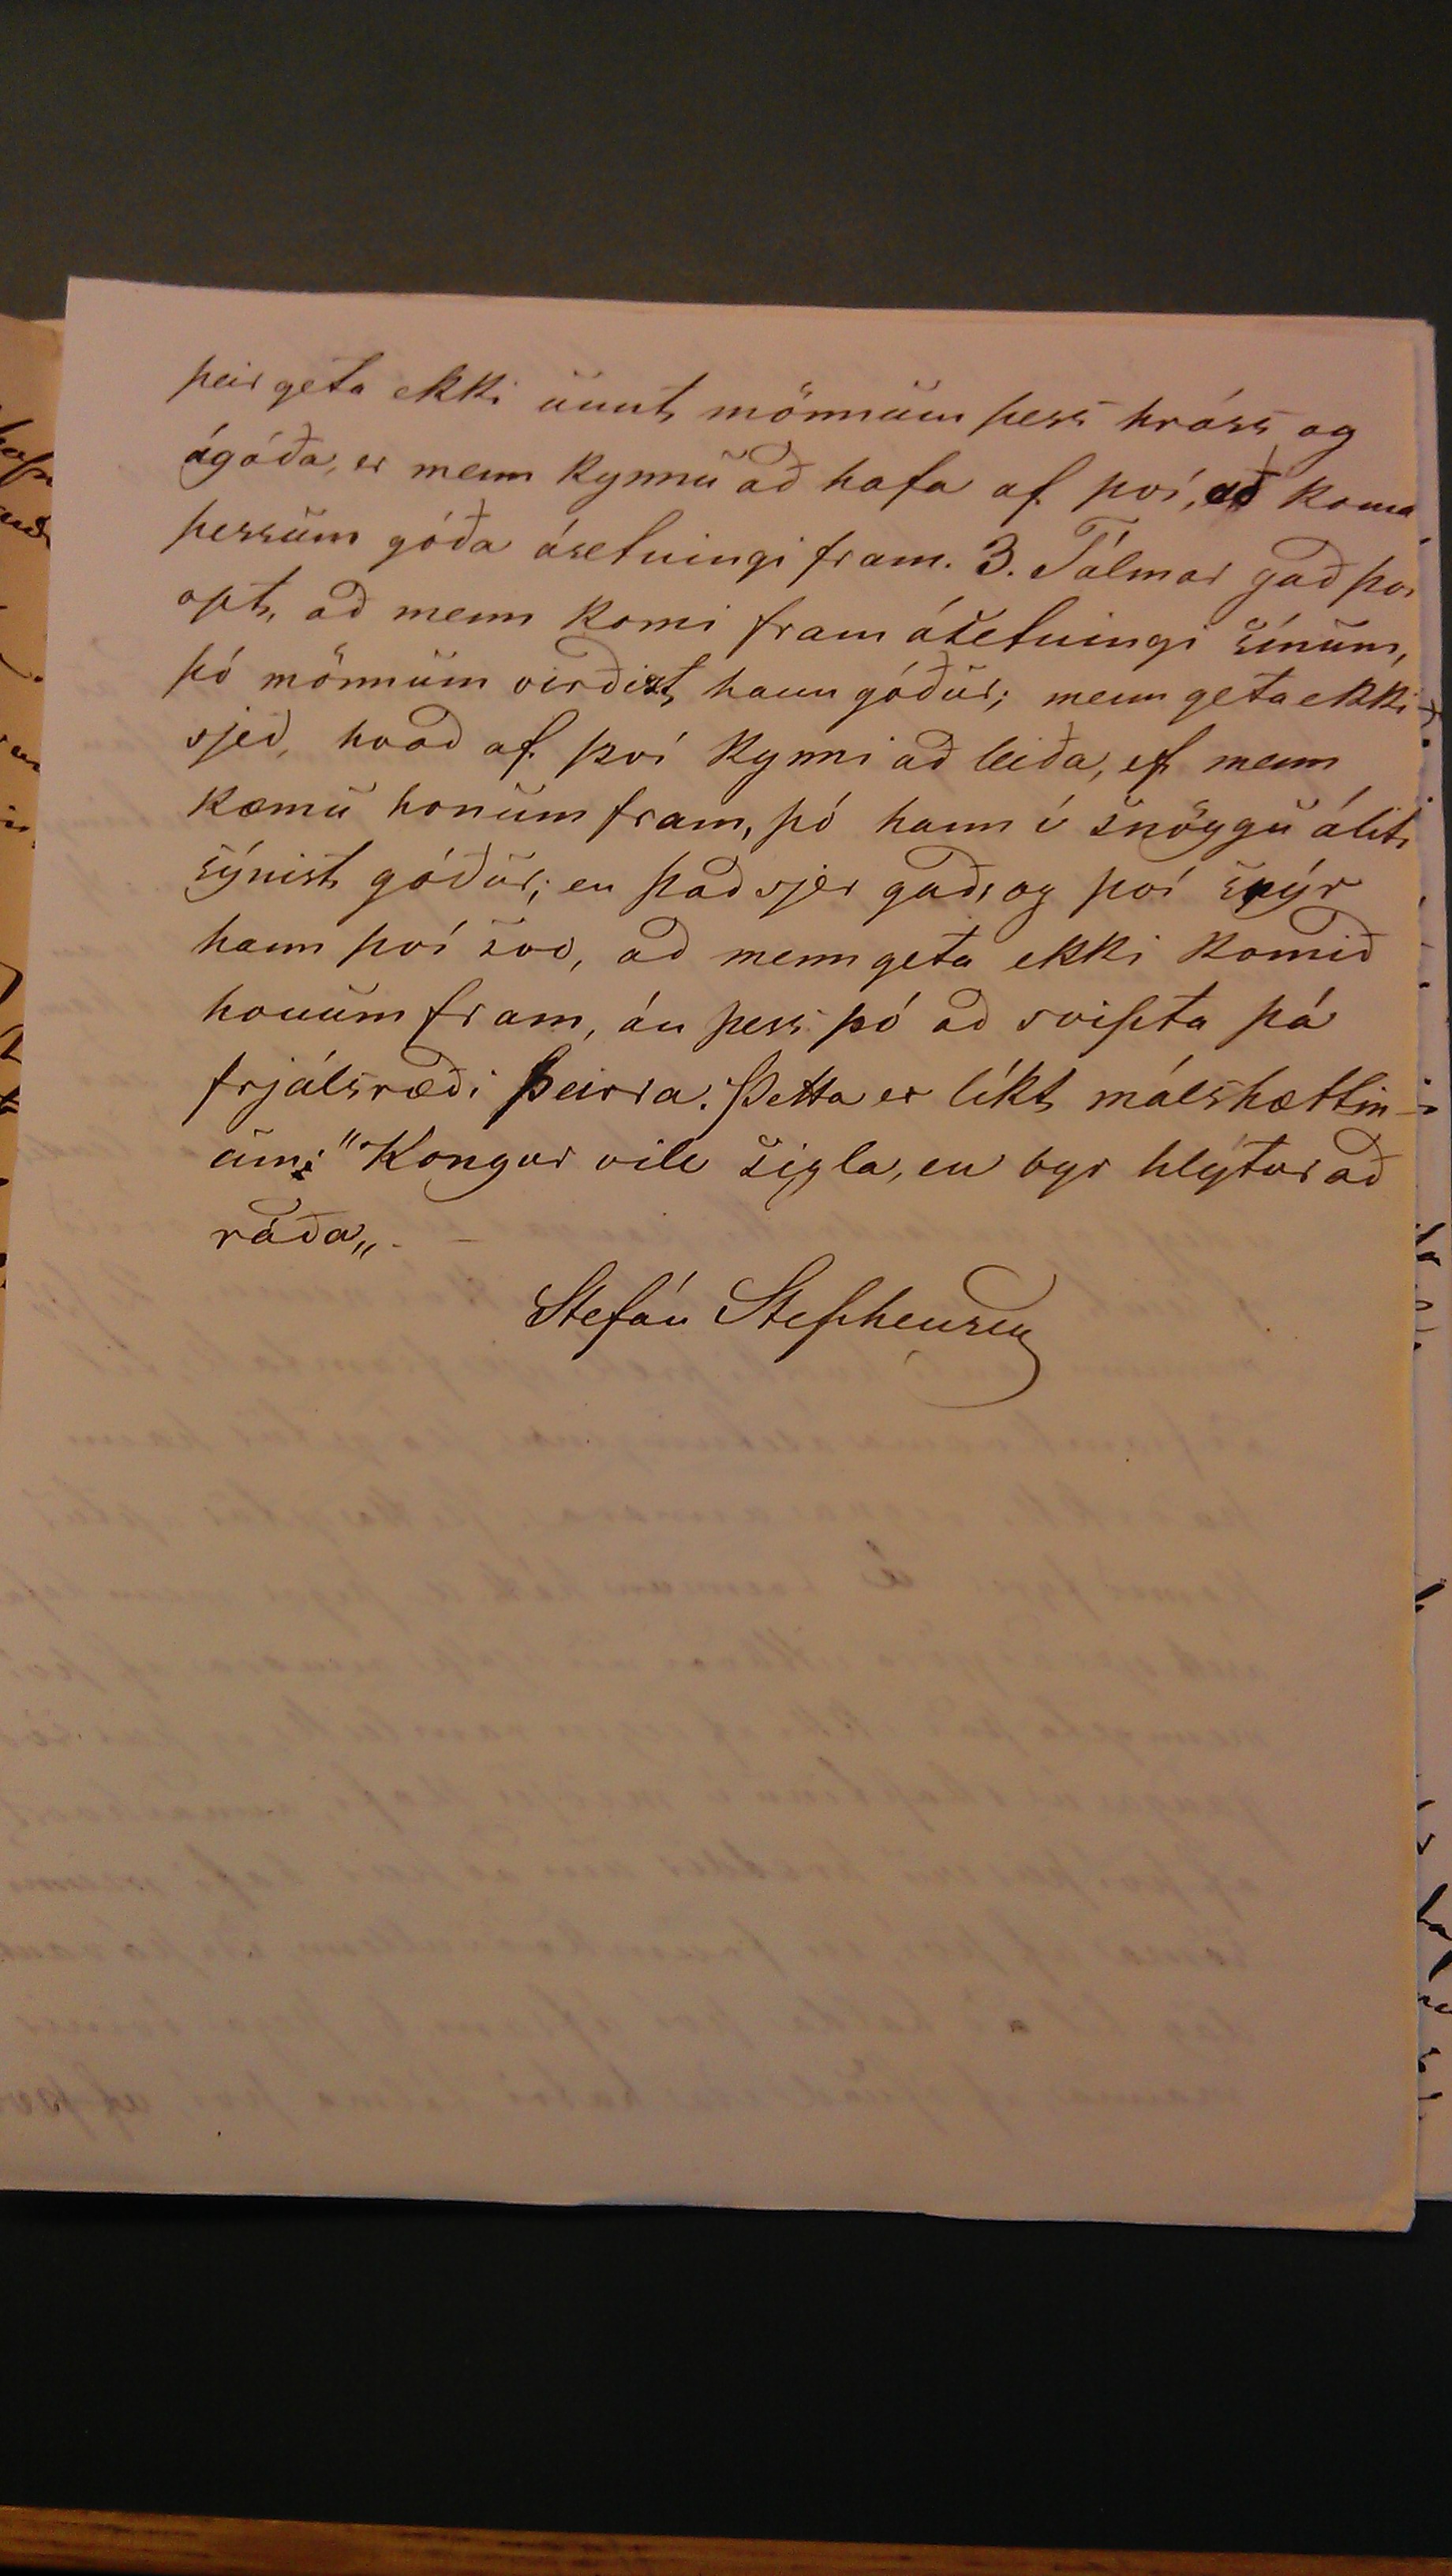 þeir geta ekki unnt mönnum þess hróss og
ágóða, er menn kynnu að hafa af því, að koma
þessum góða ásetningi fram. 3. Tálmar guð því
opt, að menn komi fram ásetningi sínum,
þó mönnum virðist hann góður; menn geta ekki
sjeð, hvað af því kynni að leiða, ef menn
kæmu honum fram, þó hann í snöggu áliti
sýnist góður; en það sjer guð, og því snýr
hann því svo, að menn geta ekki komið
honum fram, án þess þó að svipta þá
frjálsræði þeirra. Þetta er líkt málshættin-
um: "Kongur vill sigla, en byr hlýtur að
ráða„. -
Stefán Stephensen